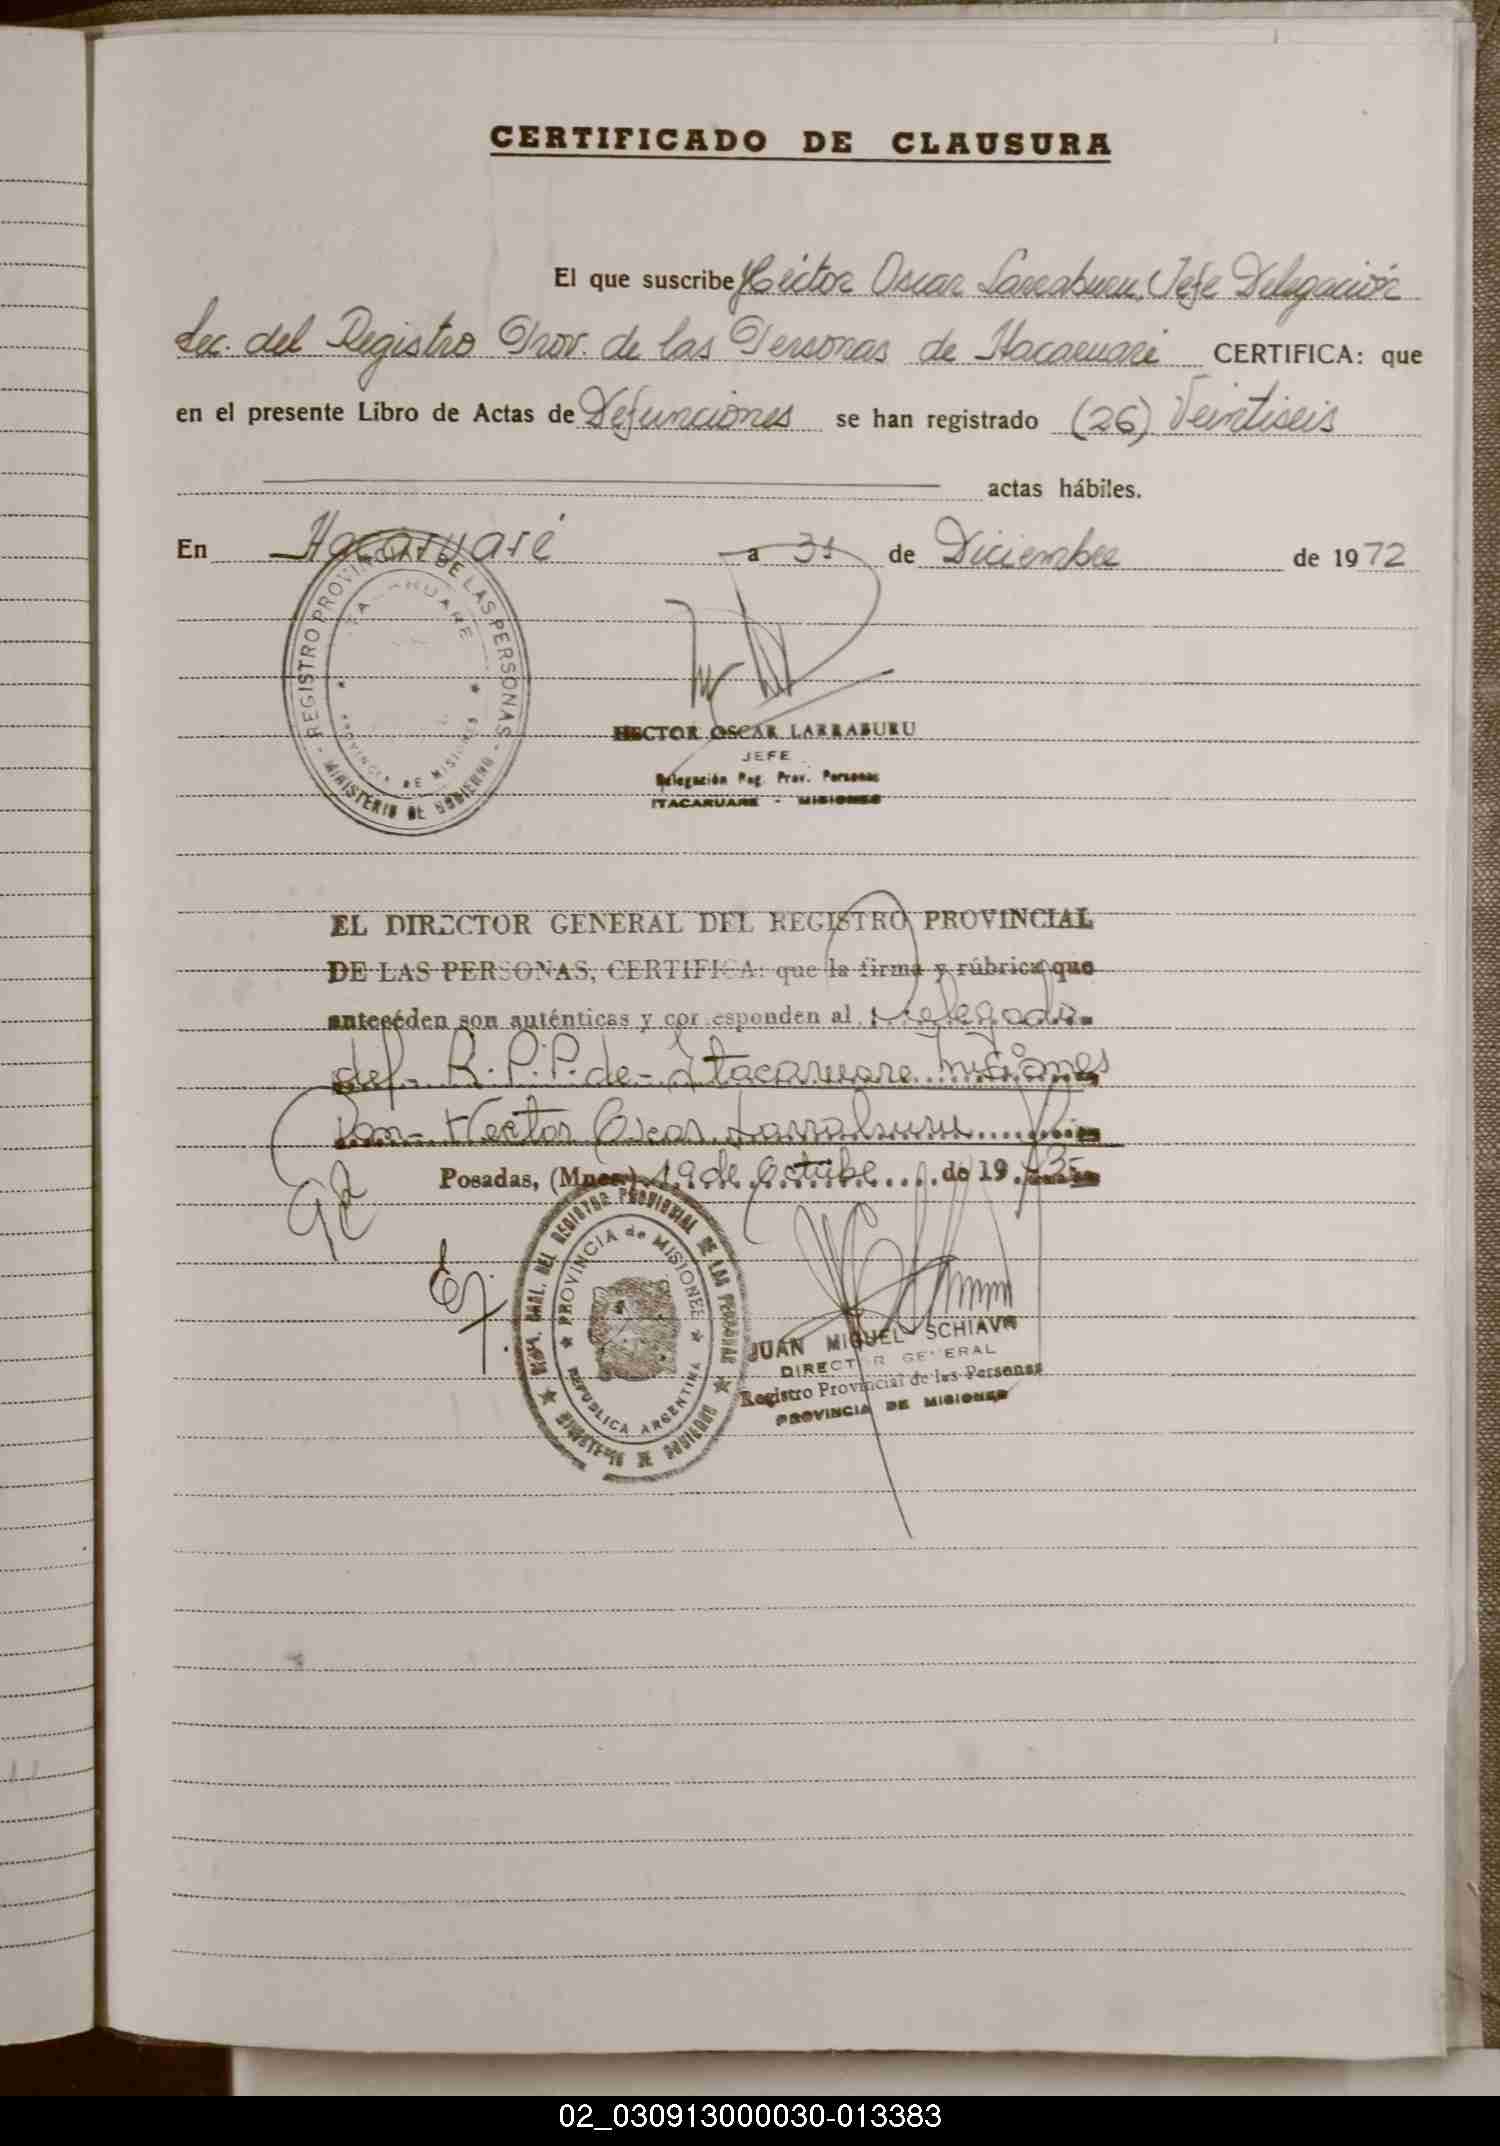 CERTIFICADO DE CLAUSURA
El que suscribe Héctor Oscar Larraburu, Jefe Delegación
Sec. del Registro Prov. de las Personas de Itacaruaré CERTIFICA: que
en el presente Libro de Actas de Defunciones se han registrado (26) Veintiseis
actas hábiles.
En Itacaruaré a 31 de Diciembre de 1972
REGISTRO PROVINCIAL DE LAS PERSONAS - MINISTERIO DE GOBIERNO -
PROVINCIA DE MISIONES
HECTOR OSCAR LARRABURU
JEFE
Delegación Reg. Prov. Personas
ITACARUARE - MISIONES
EL DIRECTOR GENERAL DEL REGISTRO PROVINCIAL
DE LAS PERSONAS, CERTIFICA: que la firma y rúbrica que
anteceden son auténticas y corresponden al Delegado
del R.P.P. de Itacaruare Misiones
Don Hector Oscar Larraburu
Posadas, (Mnes.) 19 de Octubre de 19
PROVINCIA de MISIONES
REPUBLICA ARGENTINA
MINISTERIO DE GOBIERNO
JUAN MIGUEL SCHIAVO
DIRECTOR GENERAL
Registro Provincial de las Personas
PROVINCIA DE MISIONES
02_030913000030-013383